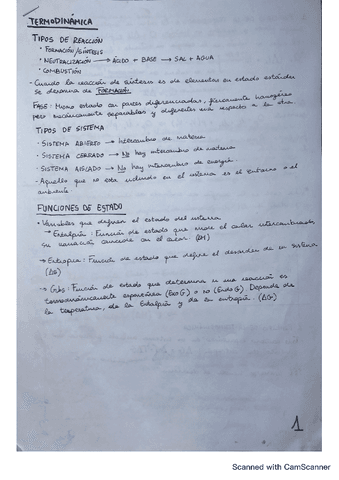 TERMODINÁMICA
TIPOS DE REACCIÓN
• FORMACIÓN/SÍNTESIS
• NEUTRALIZACIÓN → ÁCIDO + BASE → SAL + AGUA
• COMBUSTIÓN
- Cuando la reacción de síntesis es de elementos en estado estándar
se denomina de FORMACIÓN.
FASE: Mismo estado con partes diferenciadas, físicamente homogéneo
pero mecánicamente separables y diferentes una respecto a la otra.
TIPOS DE SISTEMA
- SISTEMA ABIERTO → Intercambio de materia
- SISTEMA CERRADO → No hay intercambio de materia
- SISTEMA AISLADO → No hay intercambio de energía.
- Aquello que no está incluido en el sistema es el entorno o el
ambiente.
FUNCIONES DE ESTADO
• Variables que definen el estado del sistema
→ Entalpía: Función de estado que mide el calor intercambiado
su variación coincide con el calor. (ΔH)
→ Entropía: Función de estado que define el desorden de un sistema
(ΔS)
→ Gibbs: Función de estado que determina si una reacción es
termodinámicamente espontánea (Exo G) o no (Endo G). Depende de
la temperatura, de la Entalpía y de la entropía. (ΔG)
1
Scanned with CamScanner